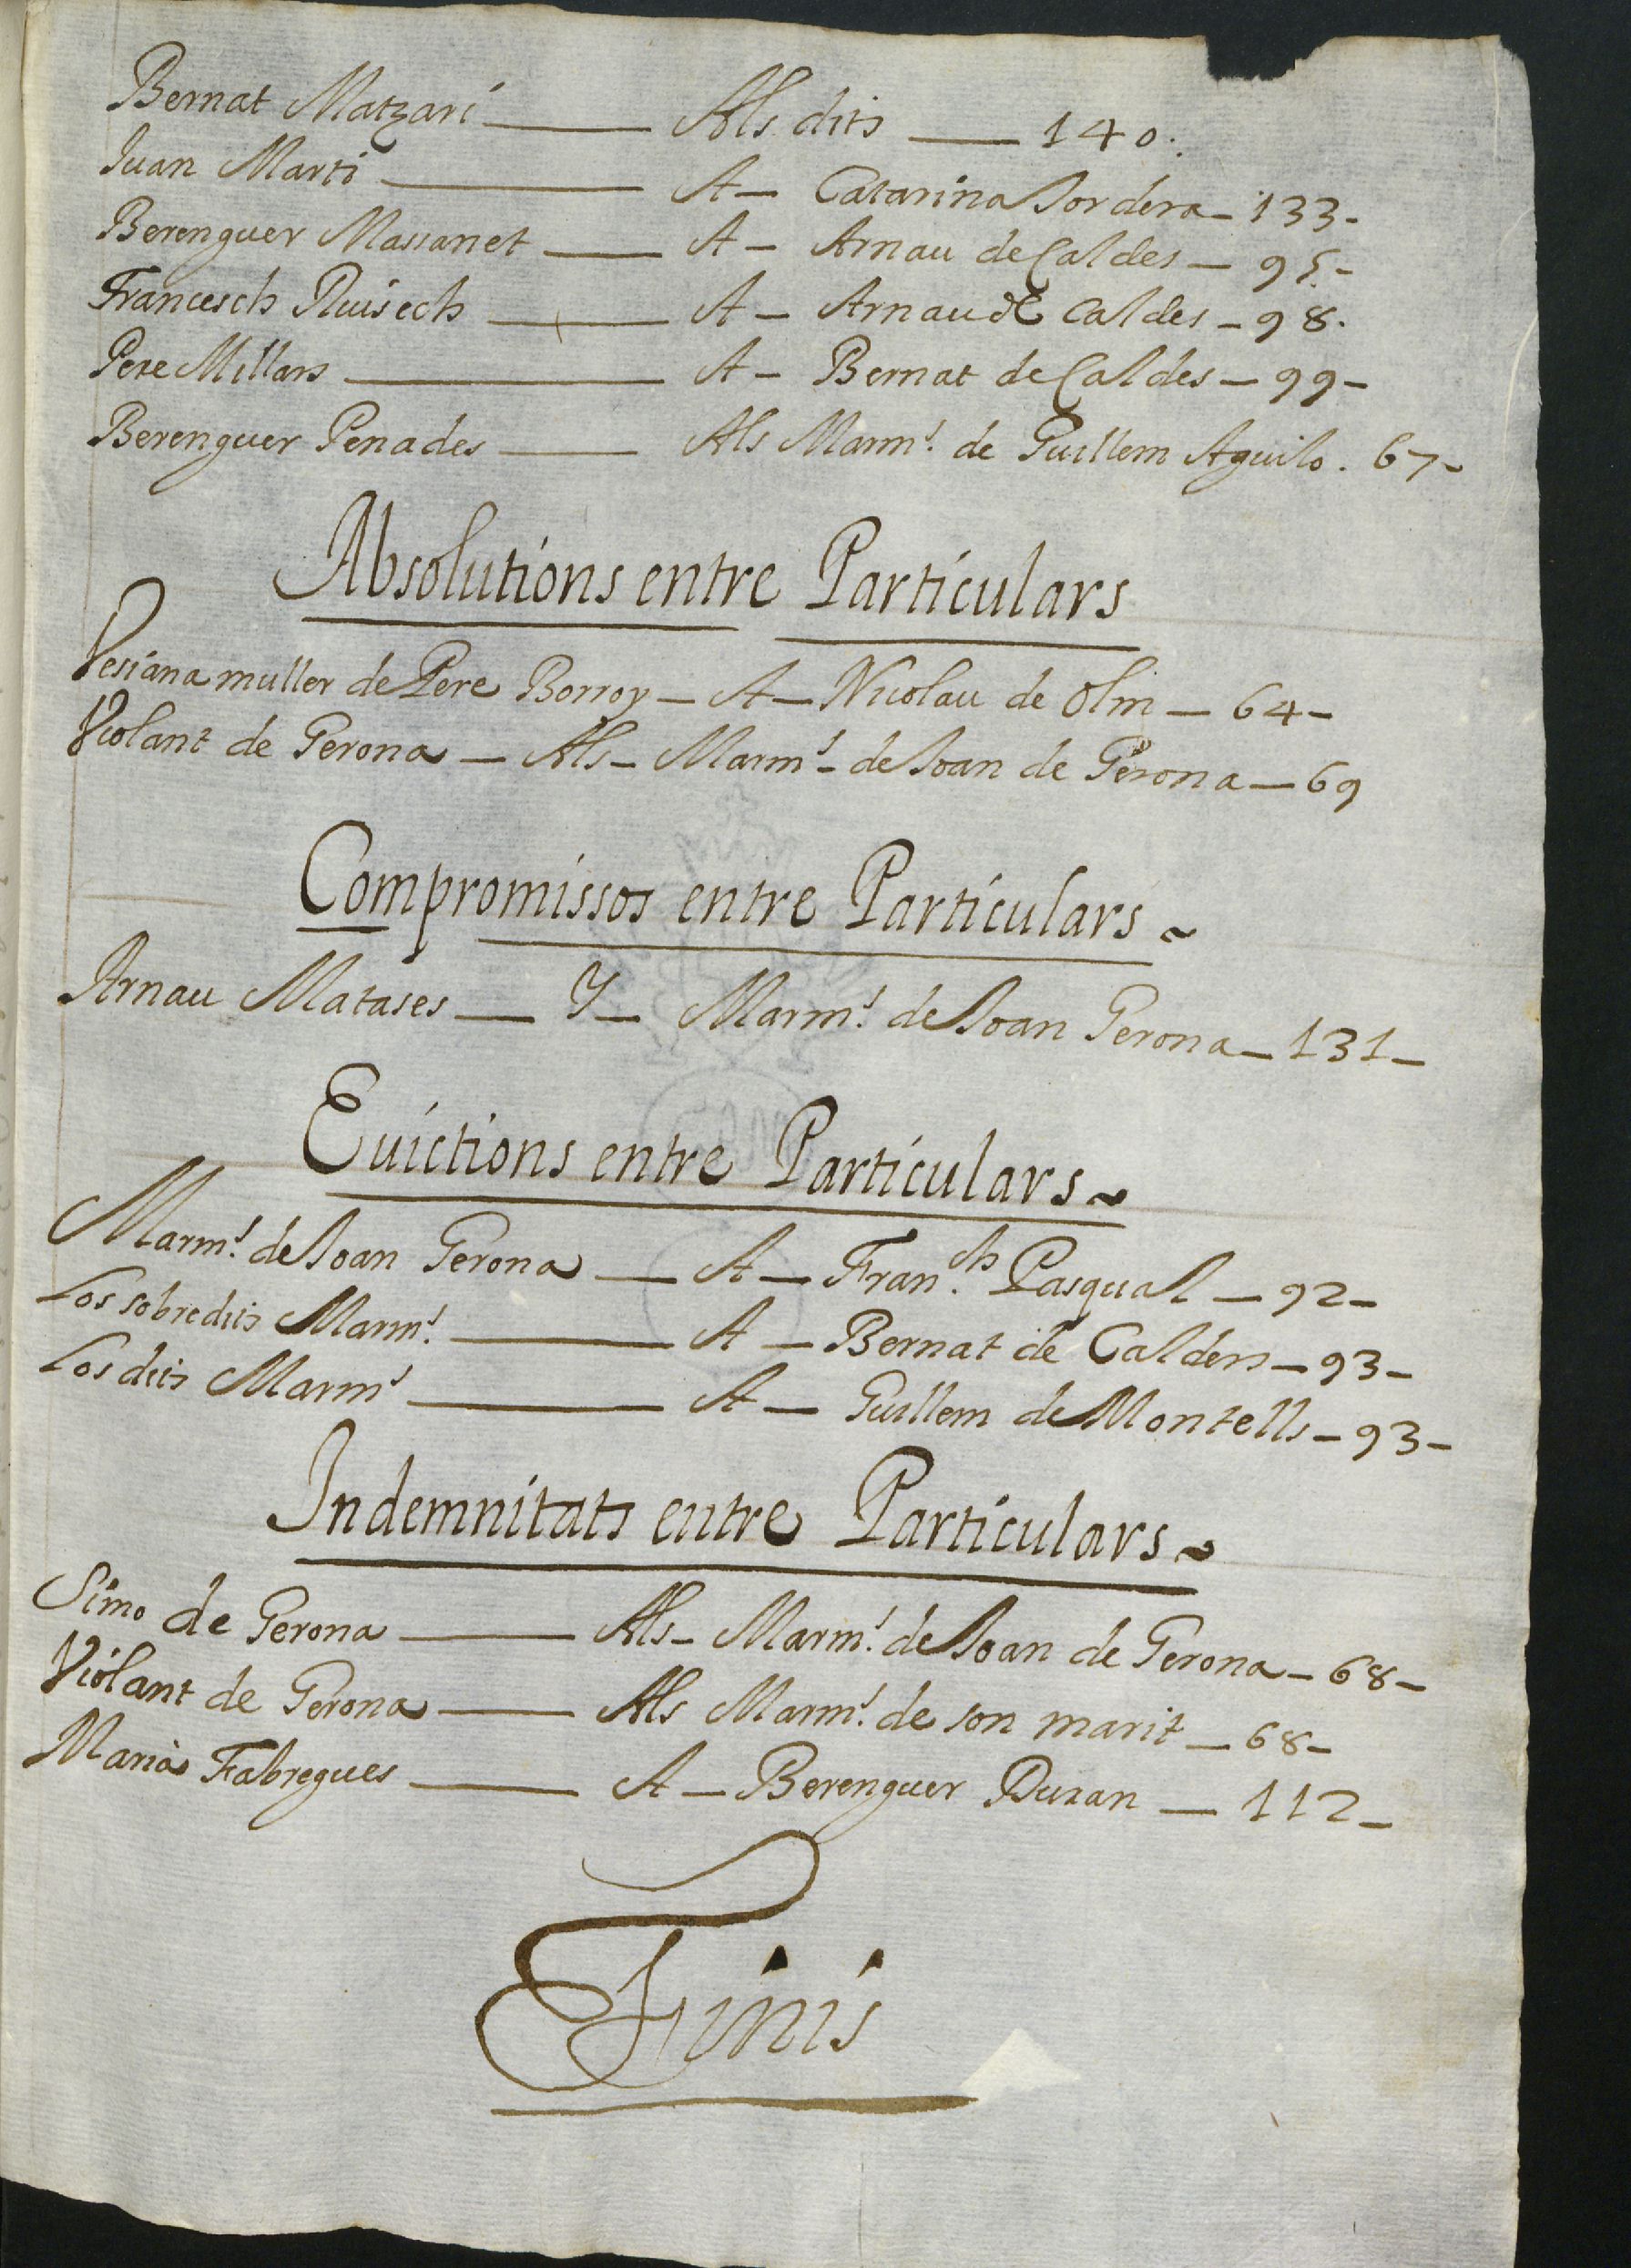 Bernat Matzari — Als dits — 140.
Juan Marti — A — Catarina Jordera — 133 —
Berenguer Massanet — A — Arnau de Caldes — 95 —
Francesch Ruisech — A — Arnau de Caldes — 98.
Pere Millars — A — Bernat de Caldes — 99 —
Berenguer Penades — Als Marm.s de Guillem Aguilo. 67 —
Absolutions entre Particulars
Vesiana muller de Pere Borroy — A — Nicolau de Olm — 64 —
Violant de Gerona — Als — Marm.s — de Joan de Gerona — 69
Compromissos entre Particulars ~
Arnau Matases — Y — Marm.s de Joan Gerona — 131 —
Evictions entre Particulars ~
Marm.s de Joan Gerona — A — Fran.ch Pasqual — 92 —
Los sobredits Marm.s — A — Bernat de Calders — 93 —
Los dits Marm.s — A — Guillem de Montells — 93 —
Indemnitats entre Particulars ~
Simo de Gerona — Als — Marm.s de Joan de Gerona — 68 —
Violant de Gerona — Als Marm.s de son marit — 68 —
Maria Fabregues — A — Berenguer Duran — 112 —
Finis